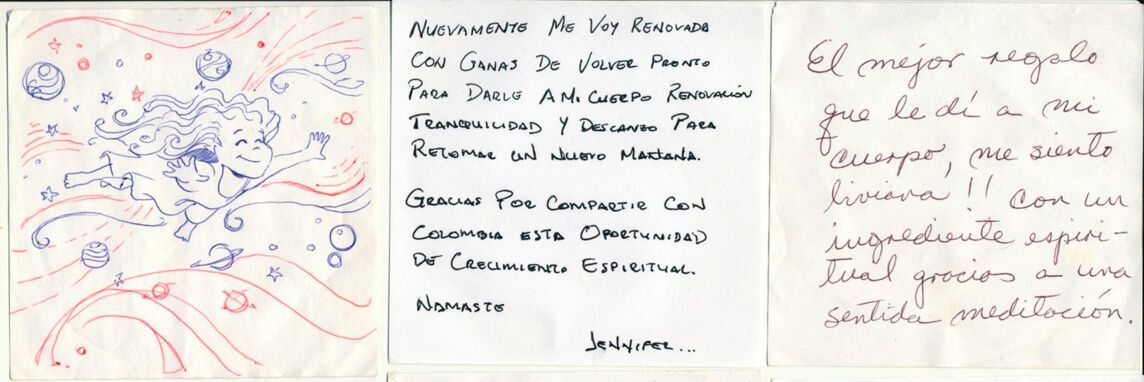 NUEVAMENTE ME VOY RENOVADA
CON GANAS DE VOLVER PRONTO
PARA DARLE A MI CUERPO RENOVACIÓN
TRANQUILIDAD Y DESCANZO PARA
RETOMAR UN NUEVO MAÑANA.
GRACIAS POR COMPARTIR CON
COLOMBIA ESTA OPORTUNIDAD
DE CRECIMIENTO ESPIRITUAL.
NAMASTE
JENNIFER...
El mejor regalo
que le dí a mi
cuerpo, me siento
liviana!! Con un
ingrediente espiri-
tual gracias a una
sentida meditación.